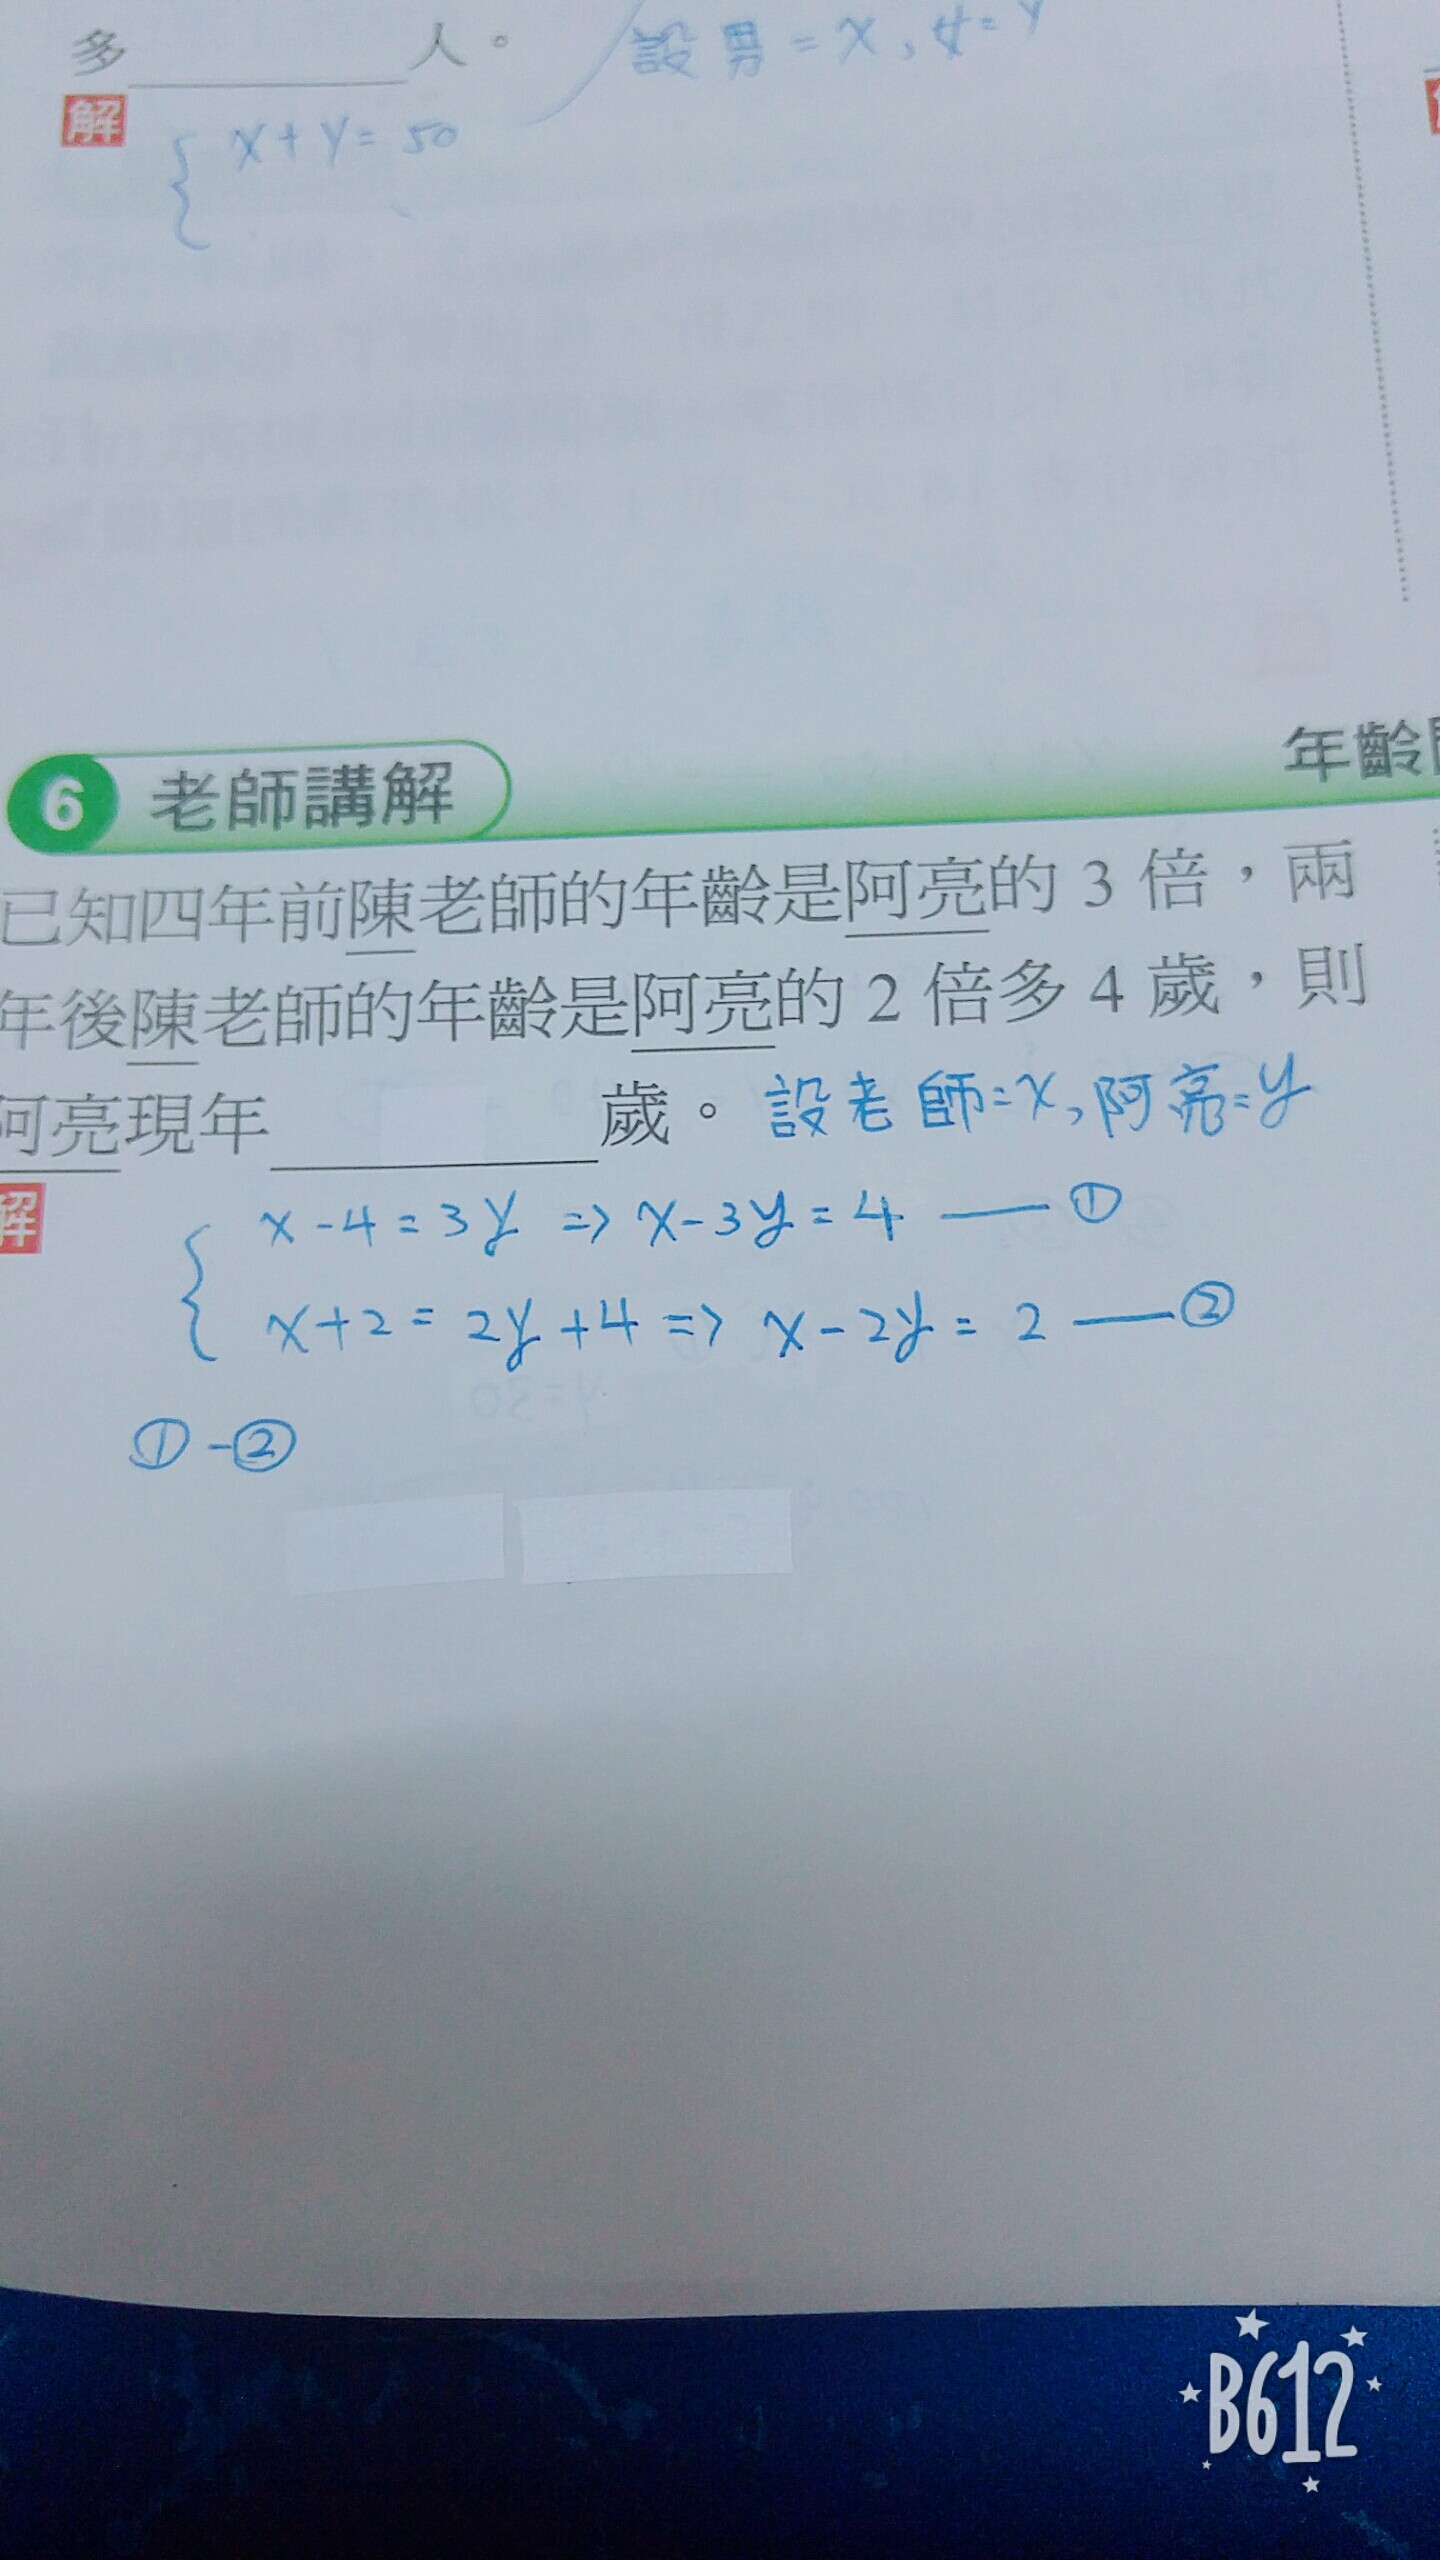 多 人。 設男=x,女=y
解
x+y=50
6 老師講解 年齡
已知四年前陳老師的年齡是阿亮的3倍,兩
年後陳老師的年齡是阿亮的2倍多4歲,則
阿亮現年 歲。 設老師=x,阿亮=y
解
x-4=3y => x-3y=4 —— ①
x+2=2y+4 => x-2y=2 —— ②
①-②
B612